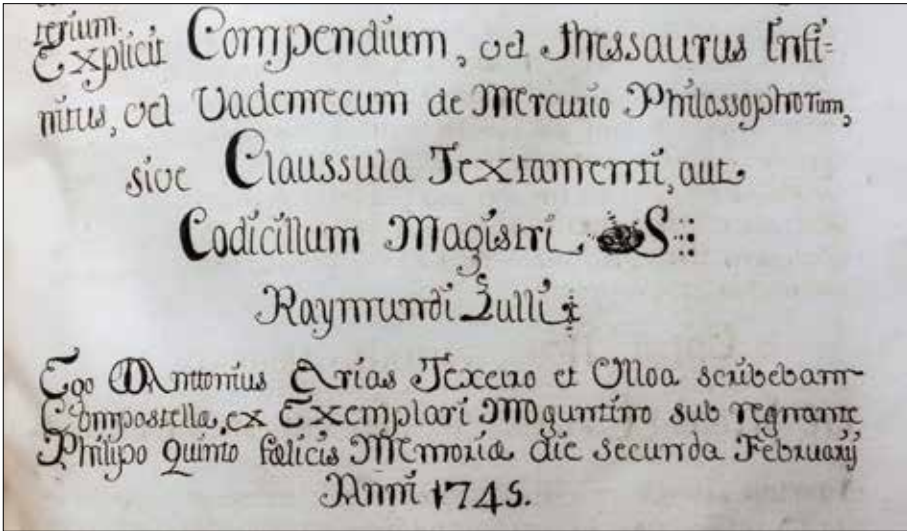 terium.
Explicit Compendium, vel Thessaurus Infi=
nitus, vel Vademecum de Mercurio Philossophorum,
sive Claussula Textamenti, aut
Codicillum Magistri S
Raymundi Lulli
Ego Anttonius Arias Texeiro et Ulloa scribebam
Compostella, ex Exemplari Moguntino sub regnante
Philipo Quinto fælicis Memoriæ die secunda Februarij
Anni 1745.